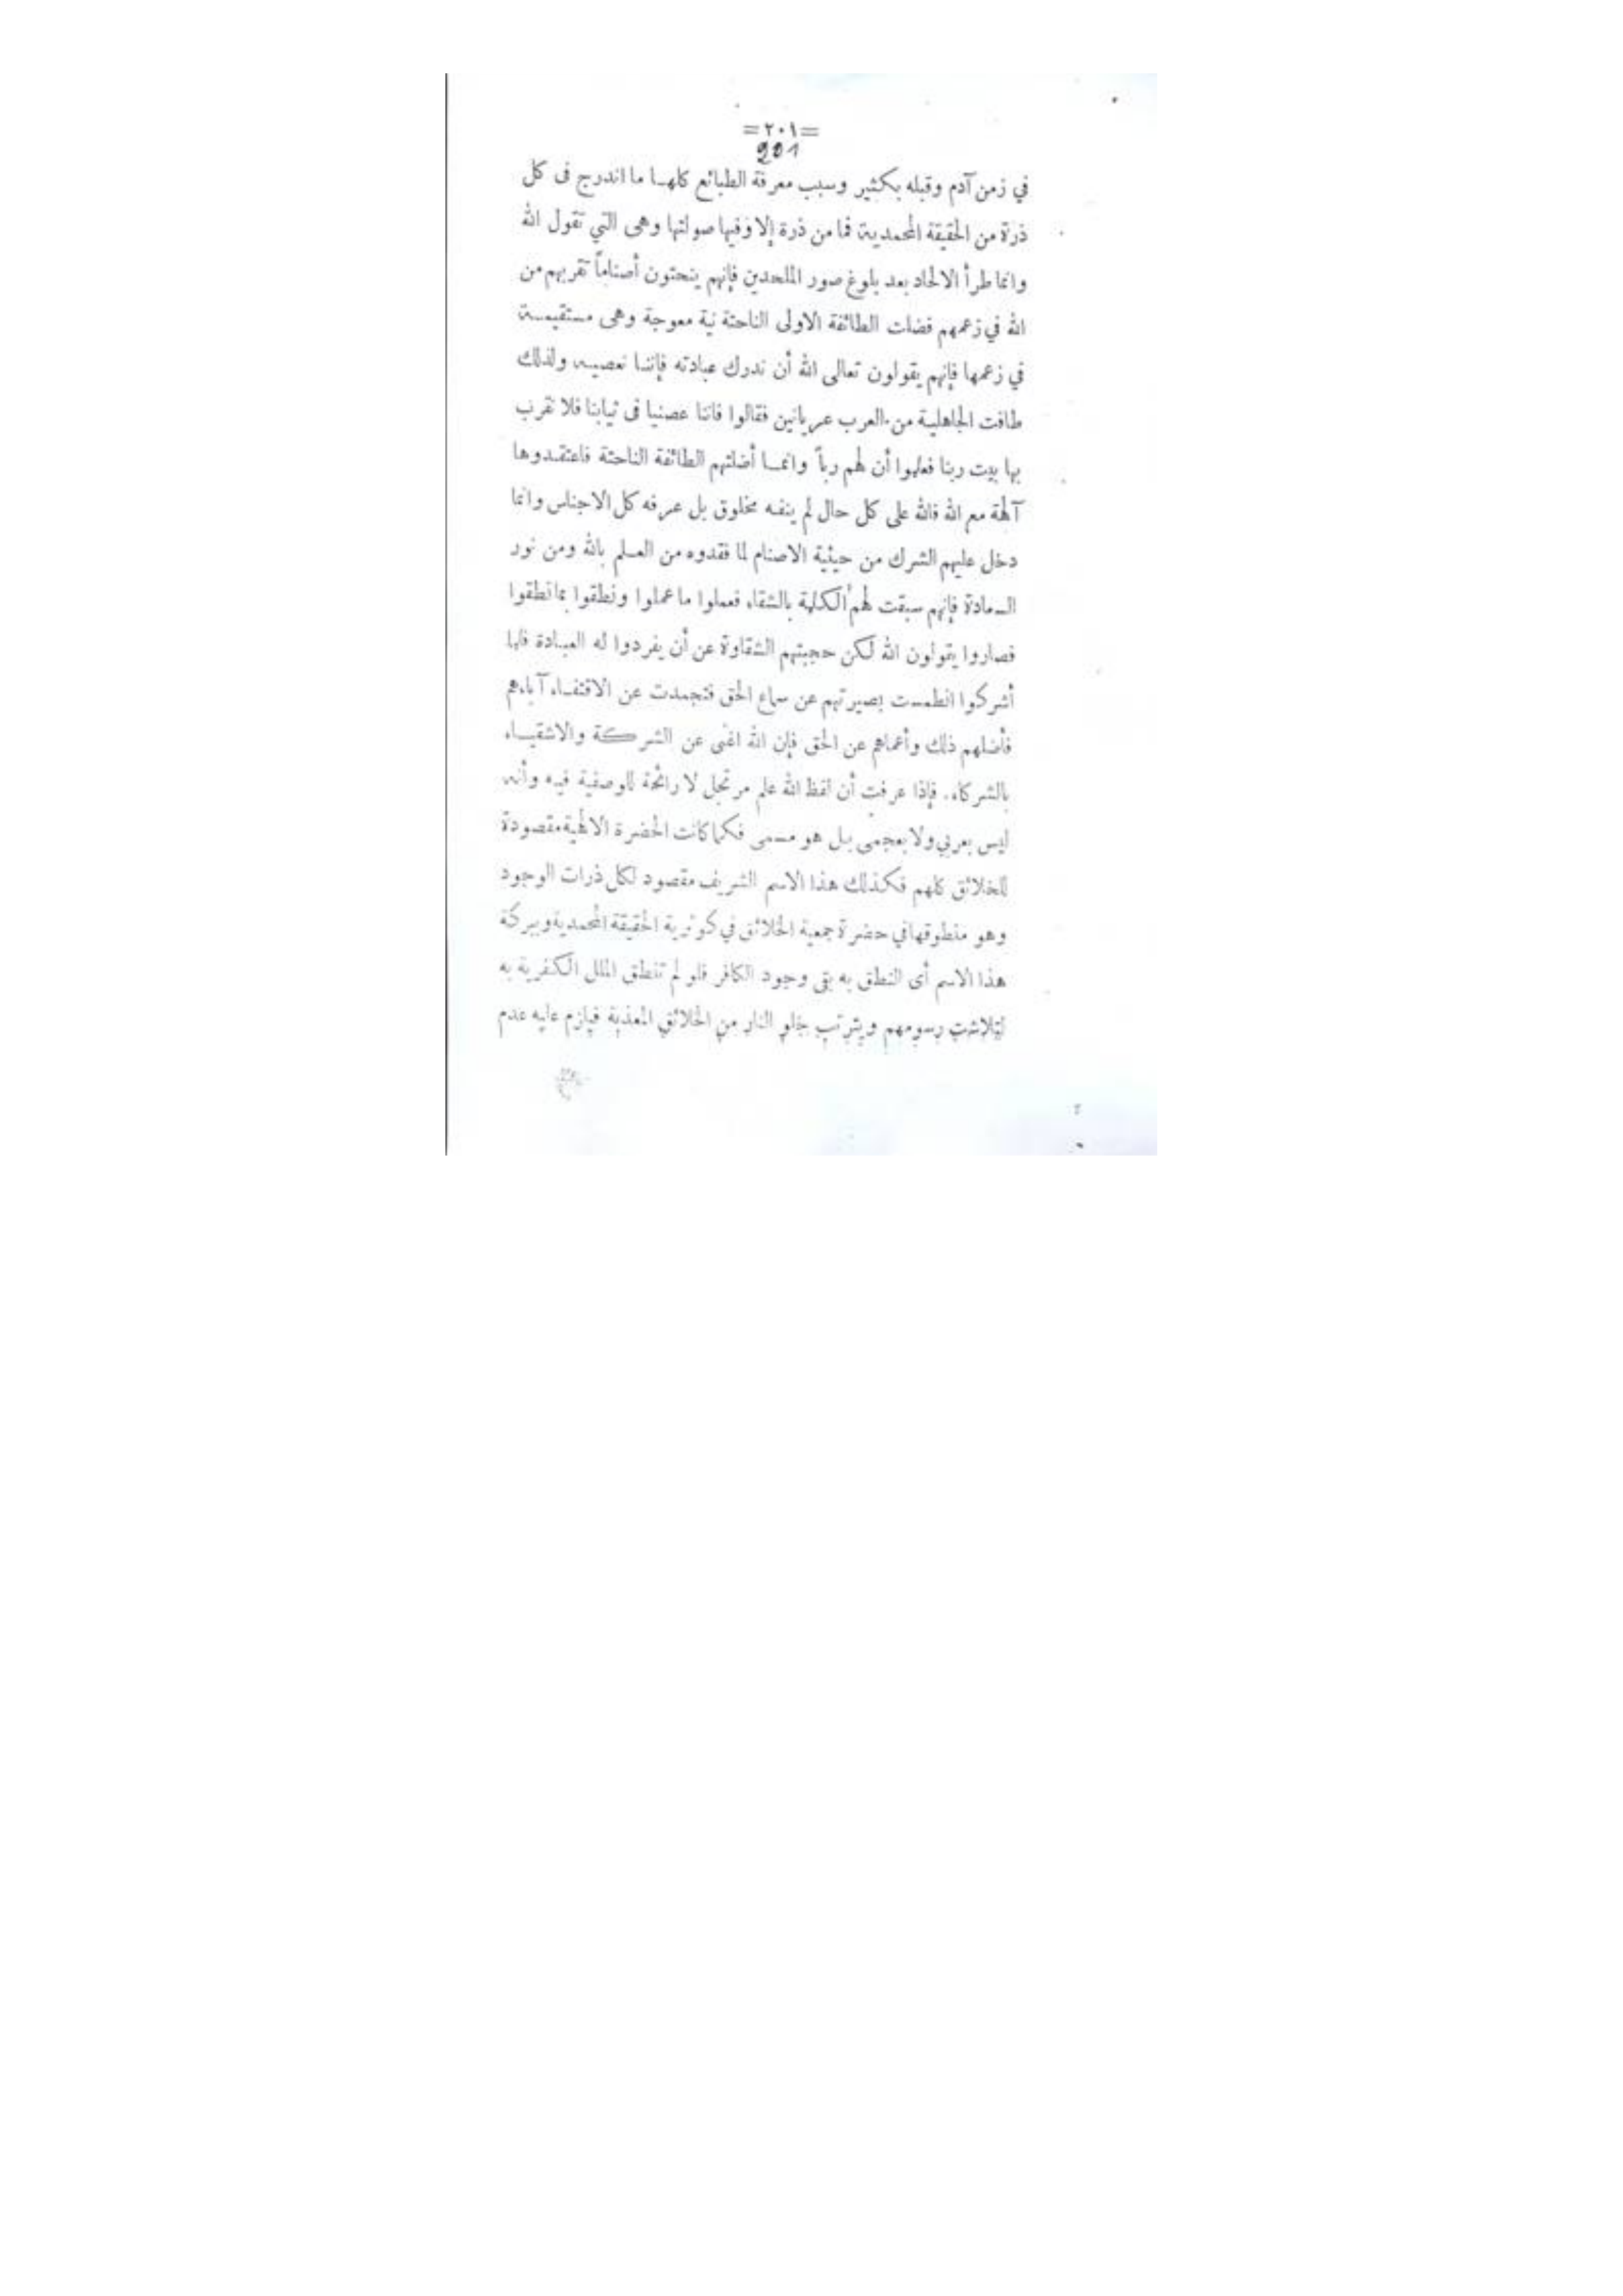 =٢٠١=
201
في زمن آدم وقبله بكثير وسبب معرفة الطبائع كلهـا ما اندرج فى كل
ذرة من الحقيقة المحمدية فما من ذرة إلا وفيها صولتها وهى التي تقول الله
وانما طرأ الالحاد بعد بلوغ صور الملحدين فإنهم ينحتون أصناماً تقربهم من
الله في زعمهم فضلت الطائفة الاولى الناحتة نية معوجة وهى مستقيمـة
في زعمها فإنهم يقولون تعالى الله أن ندرك عبادته فإننا نعصيه ولذلك
طافت الجاهلية من العرب عريانين فقالوا فاننا عصنيا فى ثيابنا فلا نقرب
بها بيت ربنا فعلموا أن لهم رباً وانمـا أضلتهم الطائفة الناحتة فاعتقدوها
آلهة مع الله فالله على كل حال لم ينفه مخلوق بل عرفه كل الاجناس وانما
دخل عليهم الشرك من حيثية الاصنام لما فقدوه من العلم بالله ومن نور
السعادة فإنهم سبقت لهم الكلمة بالشقاء فعملوا ما عملوا ونطقوا بما نطقوا
فصاروا يقولون الله لكن حجبتهم الشقاوة عن أن يفردوا له العبادة فلما
أشركوا انطمست بصيرتهم عن سماع الحق فتجمدت عن الاقتفاء آباءهم
فأضلهم ذلك وأعماهم عن الحق فإن الله اغنى عن الشركة والاشقياء
بالشركاء. فإذا عرفت أن لفظ الله علم مرتجل لا رائحة للوصفية فيه وأنه
ليس بعربي ولا بعجمى بل هو مسمى فكما كانت الحضرة الالهية مقصودة
للخلائق كلهم فكذلك هذا الاسم الشريف مقصود لكل ذرات الوجود
وهو منطوقها في حضرة جمعية الخلائق في كوثرية الحقيقة المحمدية وببركة
هذا الاسم أى النطق به بقى وجود الكافر فلو لم تنطق الملل الكفرية به
لتلاشت رسومهم ويترتب خلو النار من الخلائق المعذبة فيلزم عليه عدم